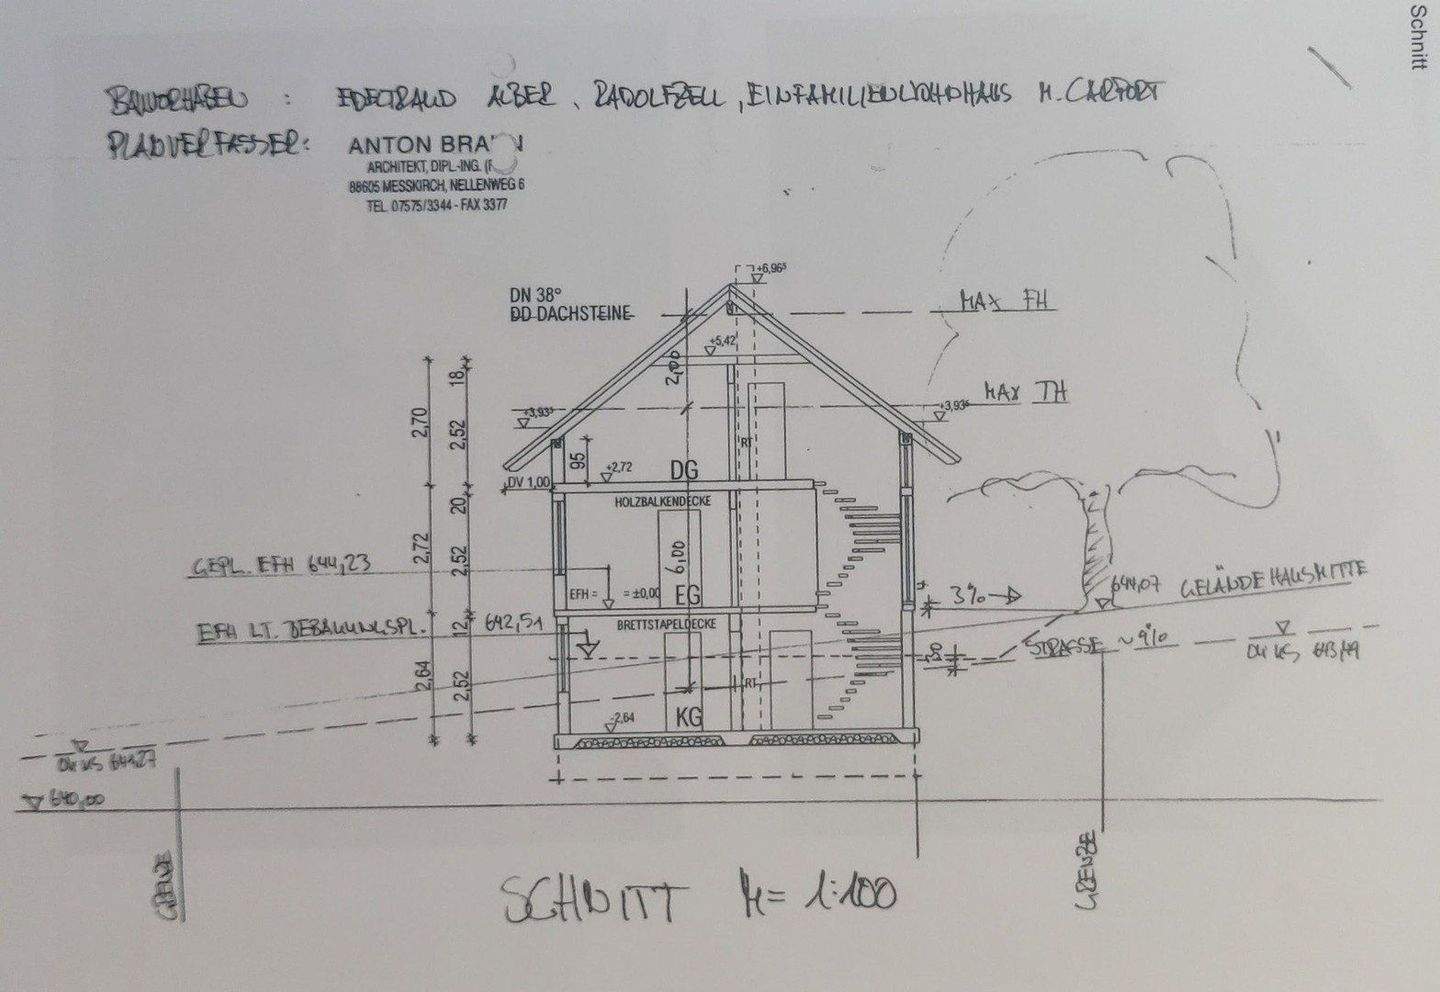 Schnitt
BAUVORHABEN : EDELTRAUD ALBER, RADOLFZELL, EINFAMILIENWOHNHAUS M. CARPORT
PLANVERFASSER:
ANTON
ARCHITEKT, DIPL.-ING.
88605 MESSKIRCH, NELLENWEG 6
TEL. 07575/3344 - FAX 3377
+6,96⁵
DN 38°
DD DACHSTEINE
MAX FH
+5,42
2,00
18
MAX TH
+3,93⁵
+3,93⁵
2,70
2,52
95
RT
+2,72
DG
DV 1,00
HOLZBALKENDECKE
20
2,72
2,52
6,00
GEPL. EFH 644,23
EFH = = ±0,00
EG
3%
644,07 GELÄNDE HAUSMITTE
EFH LT. BEBAUUNGSPL. 642,51
12
BRETTSTAPELDECKE
STRASSE ~ 9%
OK KS 643,49
80
2,64
2,52
RT
-2,64
KG
OK KS 641,27
640,00
GRENZE
GRENZE
SCHNITT M = 1:100